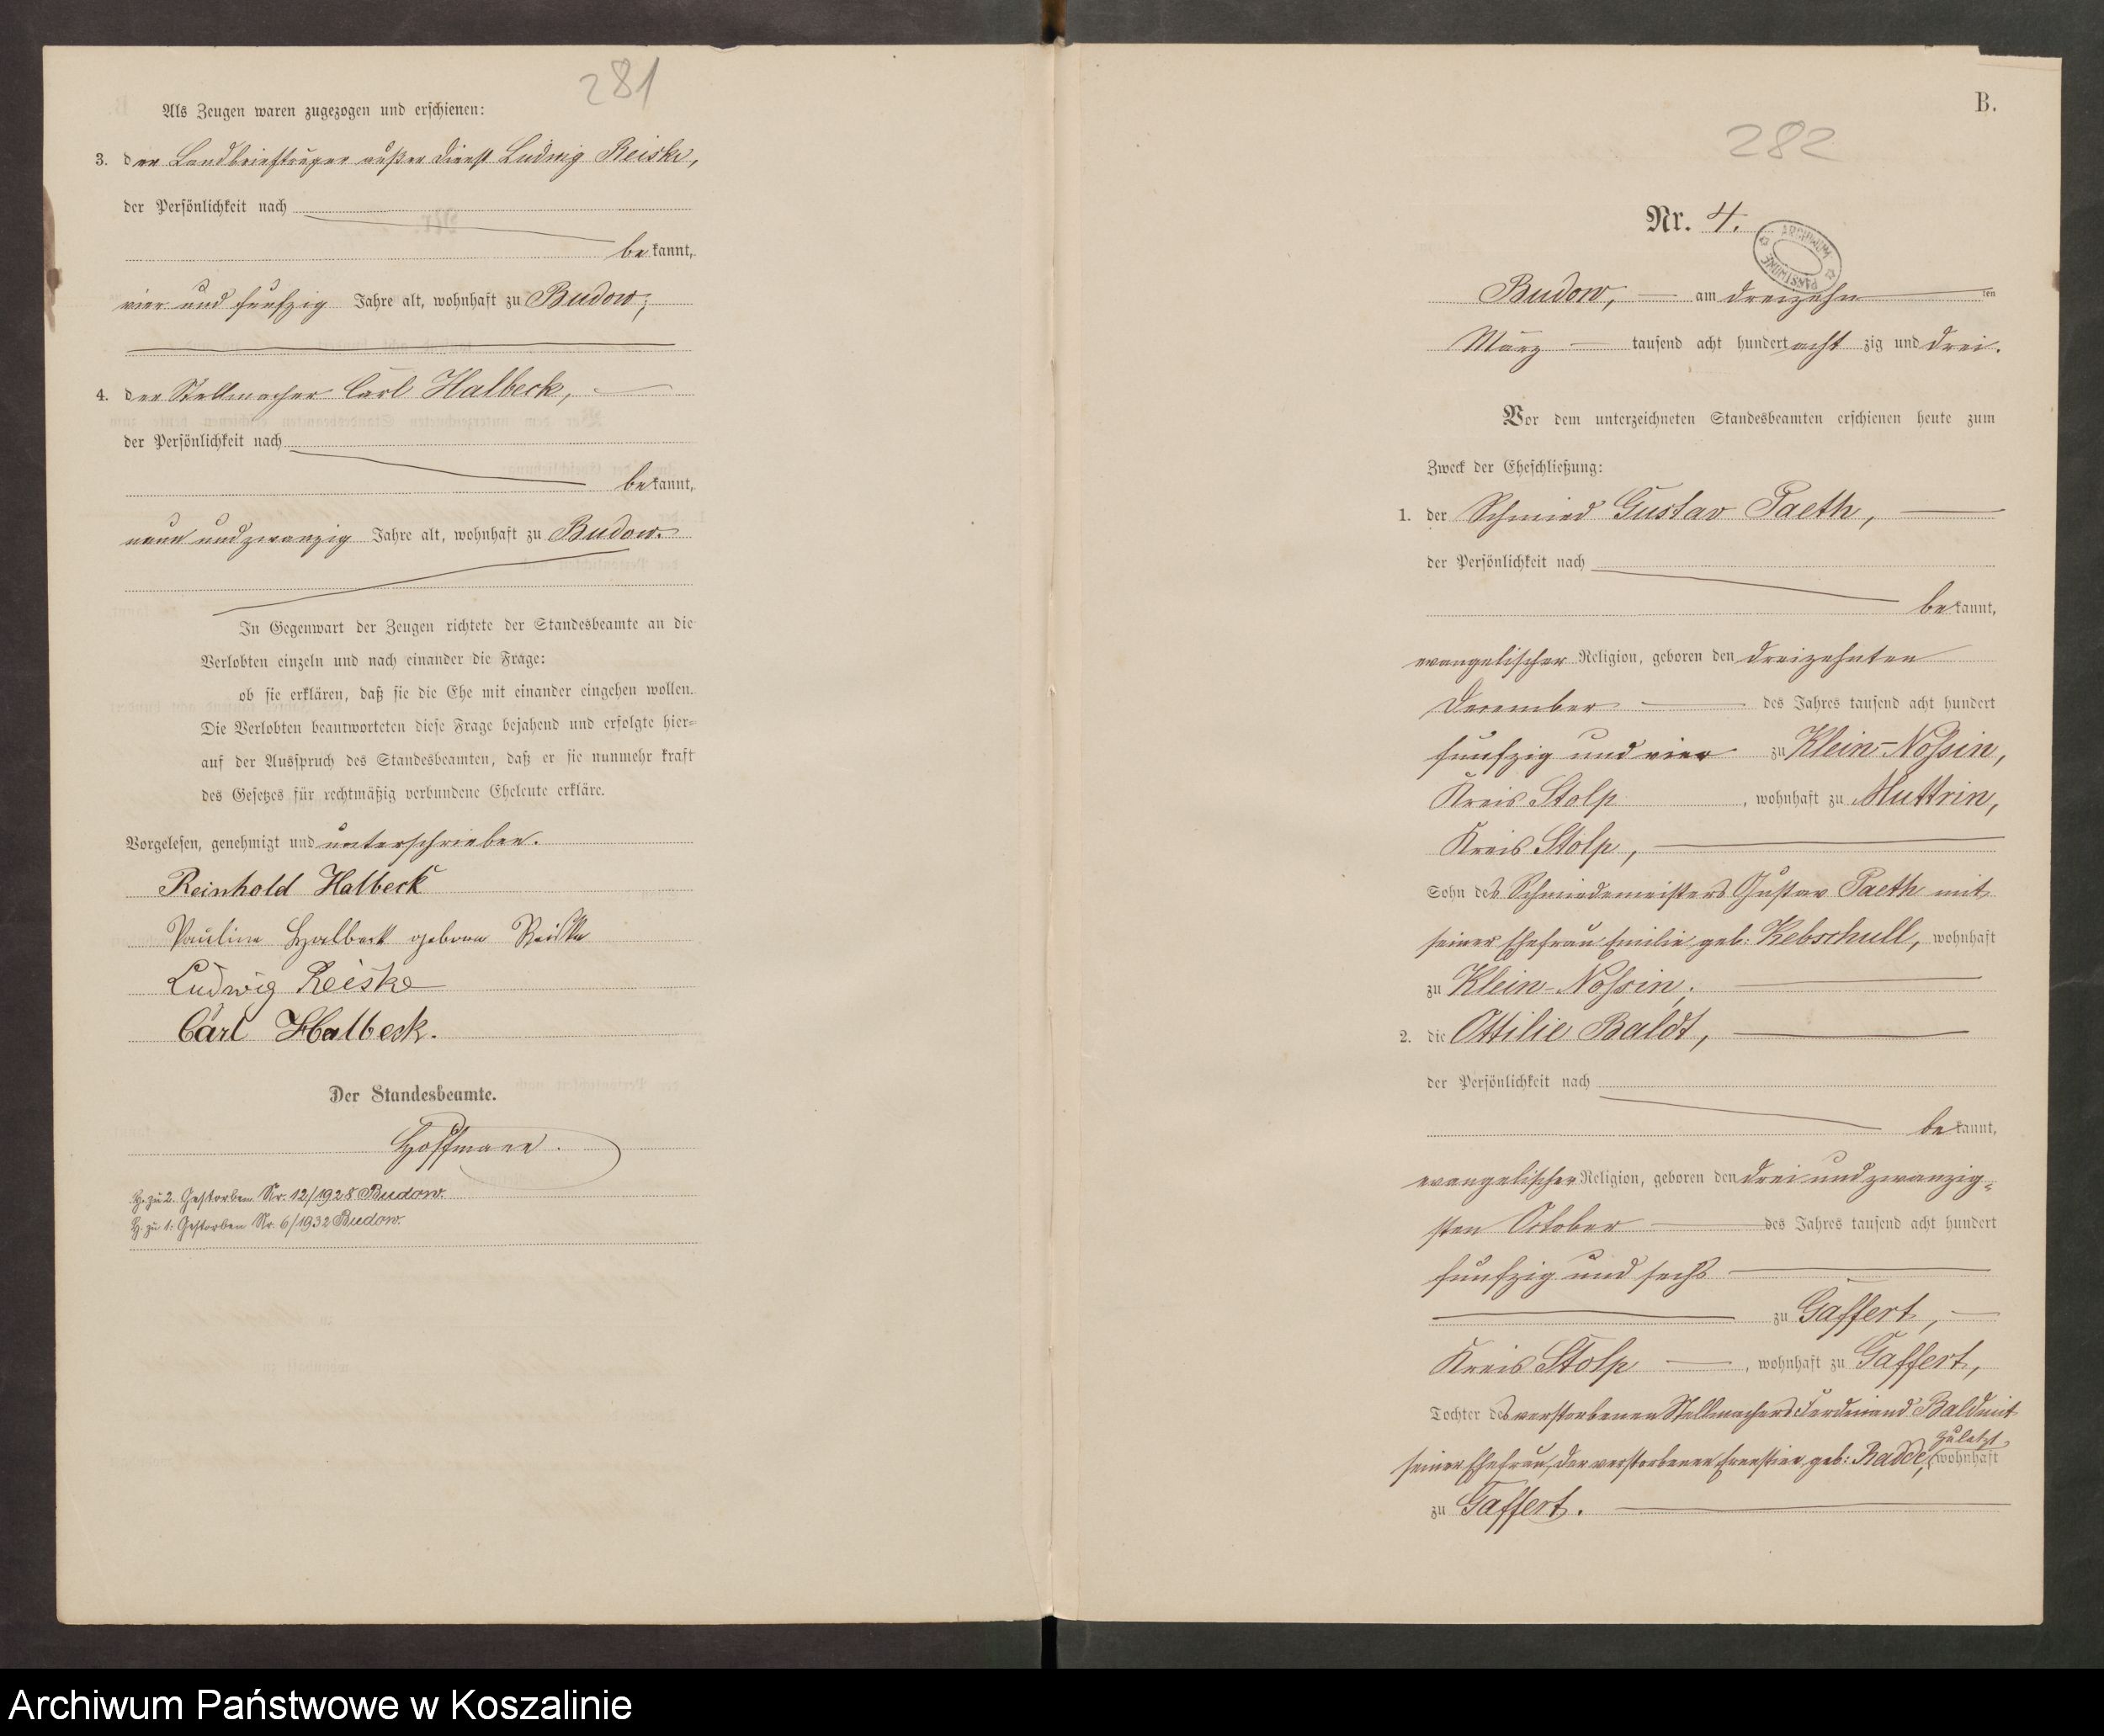 281
Als Zeugen waren zugezogen und erschienen:
3. der Landbriefträger außer Dienst Ludwig Reiske,
der Persönlichkeit nach
bekannt,
vier und funfzig Jahre alt, wohnhaft zu Budow;
4. der Stellmacher Carl Halbeck,
der Persönlichkeit nach
bekannt,
neun und zwanzig Jahre alt, wohnhaft zu Budow.
In Gegenwart der Zeugen richtete der Standesbeamte an die
Verlobten einzeln und nach einander die Frage:
ob sie erklären, daß sie die Ehe mit einander eingehen wollen.
Die Verlobten beantworteten diese Frage bejahend und erfolgte hier=
auf der Ausspruch des Standesbeamten, daß er sie nunmehr kraft
des Gesetzes für rechtmäßig verbundene Eheleute erkläre.
Vorgelesen, genehmigt und unterschrieben.
Reinhold Halbeck
Pauline Halbeck geborne Reiske
Ludwig Reiske
Carl Halbeck.
Der Standesbeamte.
Hoffmann.
H. zu 2. Gestorben Nr. 12/1928 Budow.
H. zu 1: Gestorben Nr. 6/1932 Budow.
B.
282
Nr. 4.
ARCHIWUM PAŃSTWOWE
Budow, am dreizehn ten
März tausend acht hundert acht zig und drei.
Vor dem unterzeichneten Standesbeamten erschienen heute zum
Zweck der Eheschließung:
1. der Schmied Gustav Paeth,
der Persönlichkeit nach
bekannt,
evangelischer Religion, geboren den dreizehnten
December des Jahres tausend acht hundert
funfzig und vier zu Klein-Nossin,
Kreis Stolp, wohnhaft zu Muttrin,
Kreis Stolp,
Sohn des Schmiedemeisters Gustav Paeth mit
seiner Ehefrau Emilie geb: Kebschull, wohnhaft
zu Klein-Nossin;
2. die Ottilie Baldt,
der Persönlichkeit nach
bekannt,
evangelischer Religion, geboren den drei und zwanzig=
sten October des Jahres tausend acht hundert
funfzig und sechs
zu Gaffert,
Kreis Stolp, wohnhaft zu Gaffert,
Tochter des verstorbenen Stellmachers Ferdinand Baldt mit
seiner Ehefrau, der verstorbenen Ernestine geb: Radde, zuletzt wohnhaft
zu Gaffert.
Archiwum Państwowe w Koszalinie